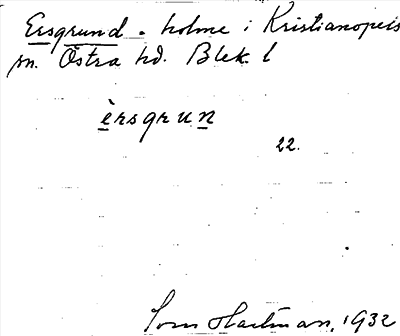 Ersgrund - holme i Kristianopels
sn. Östra hd. Blek. l
èrsgrun
22.
Hartman, 1932